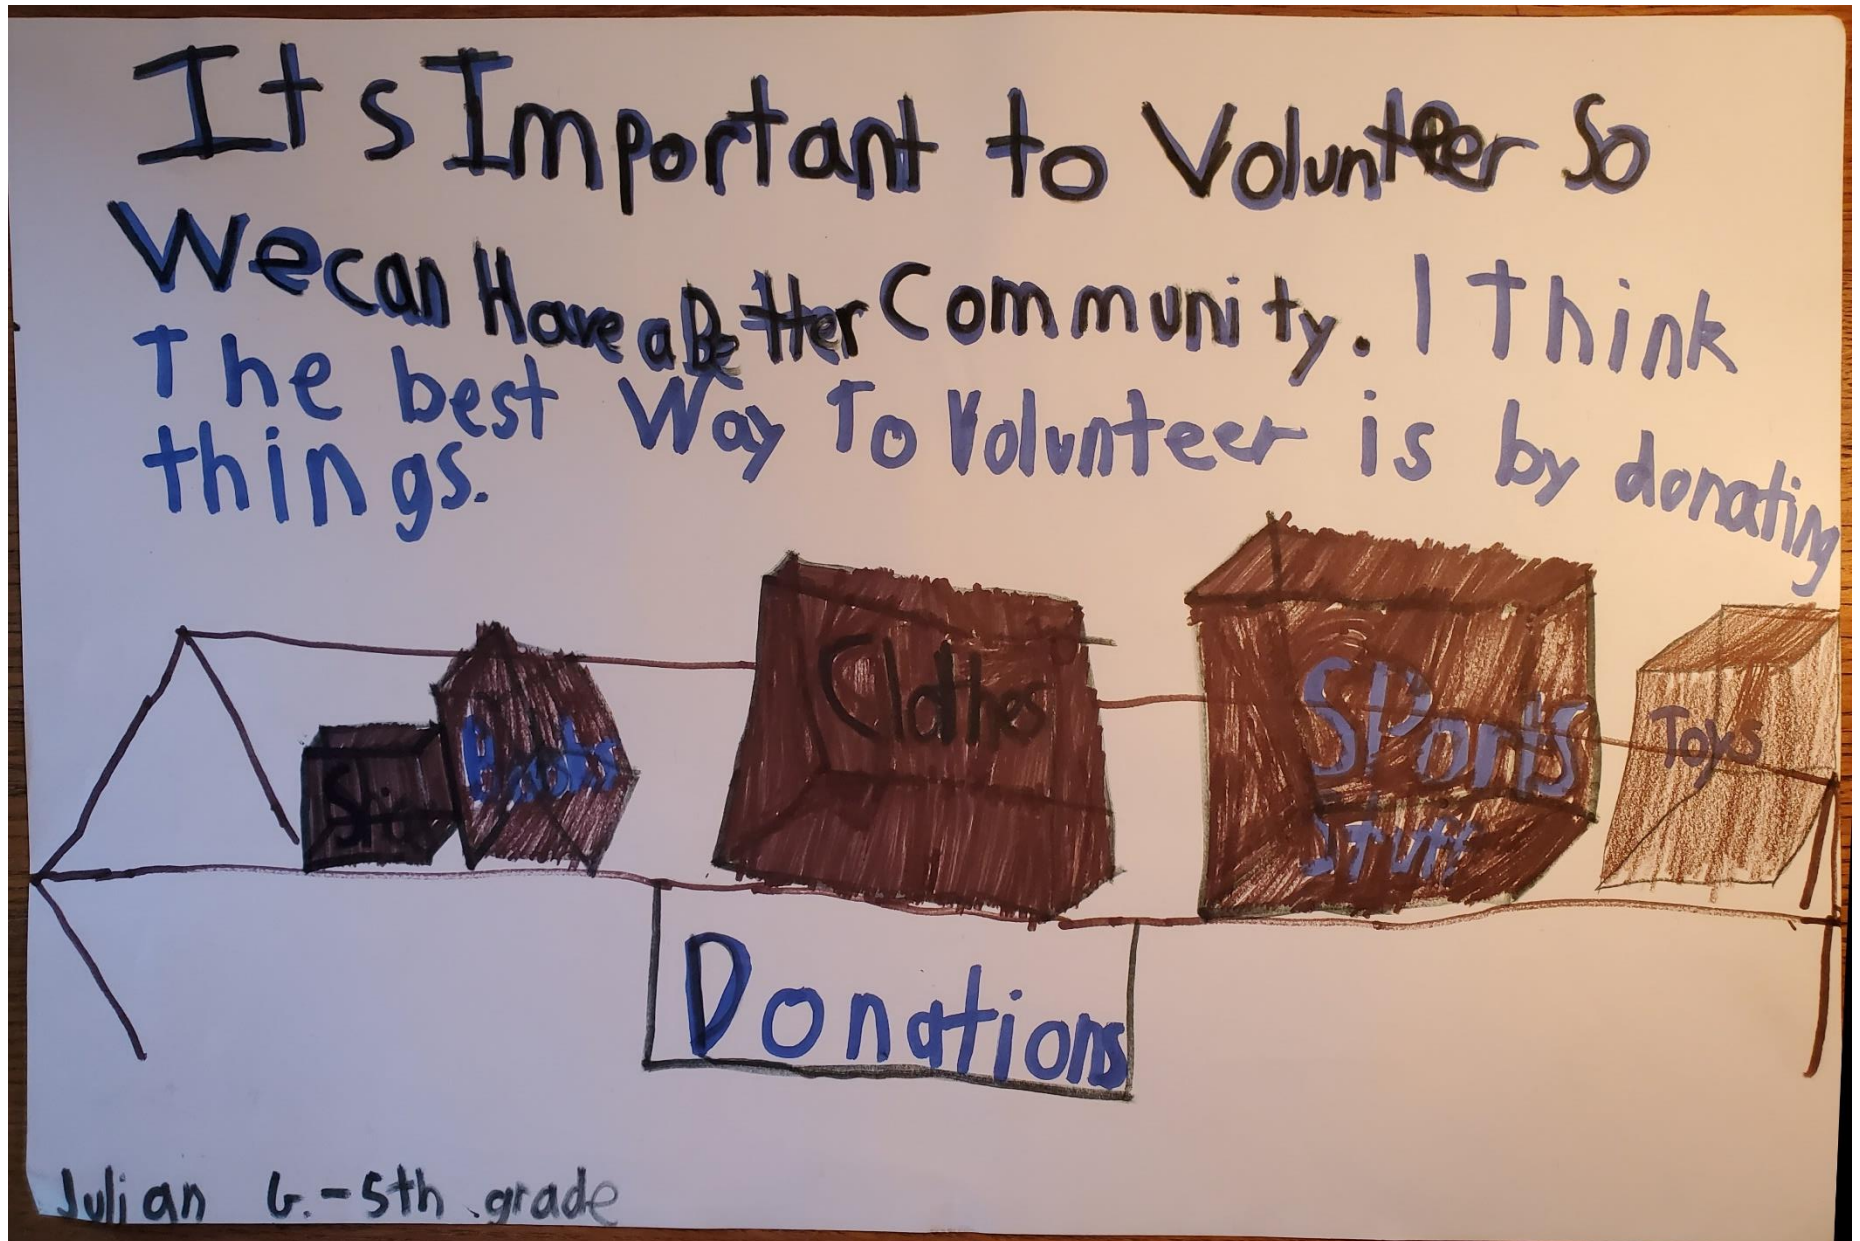 Its Important to Volunteer So
We can Have a Better Community. I Think
The best Way To Volunteer is by donating
things.
Books
Clothes
SPorts
Stuff
Toys
Donations
Julian G. - 5th grade